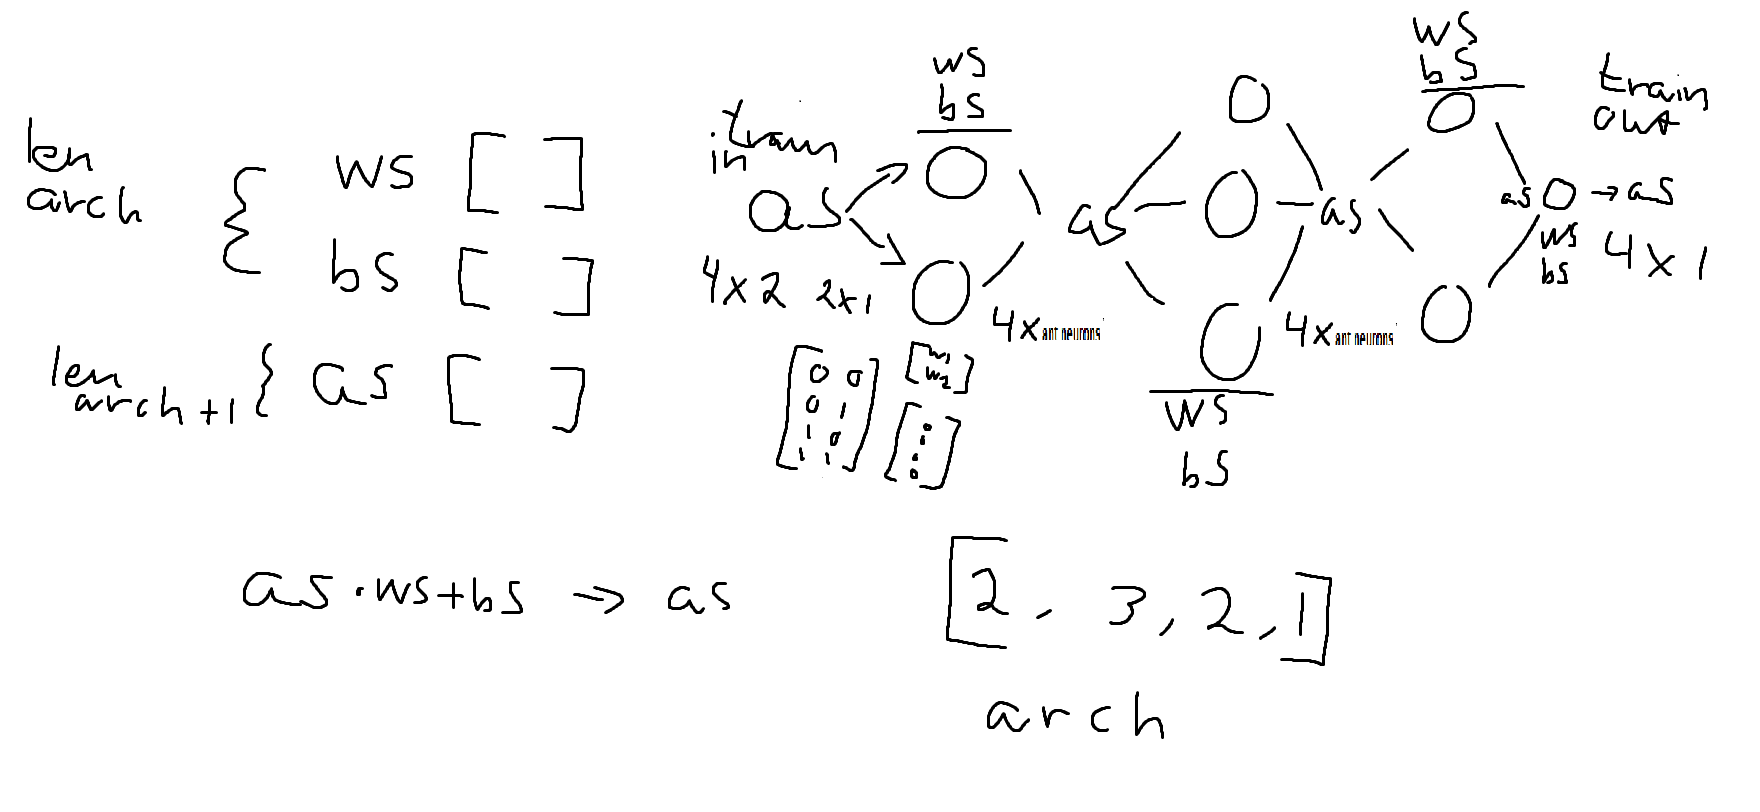 len
arch
ws [ ]
bs [ ]
len
arch+1
as [ ]
train
in
as
4x2 2x1
ws
bs
4x ant neurons
[0 0
0 1
1 0
1 1]
[w1
w2]
[0
1
1
0]
as
ws
bs
4x ant neurons
as
ws
bs
train
out
as → as
ws
bs
4x1
as · ws + bs → as
[2, 3, 2, 1]
arch